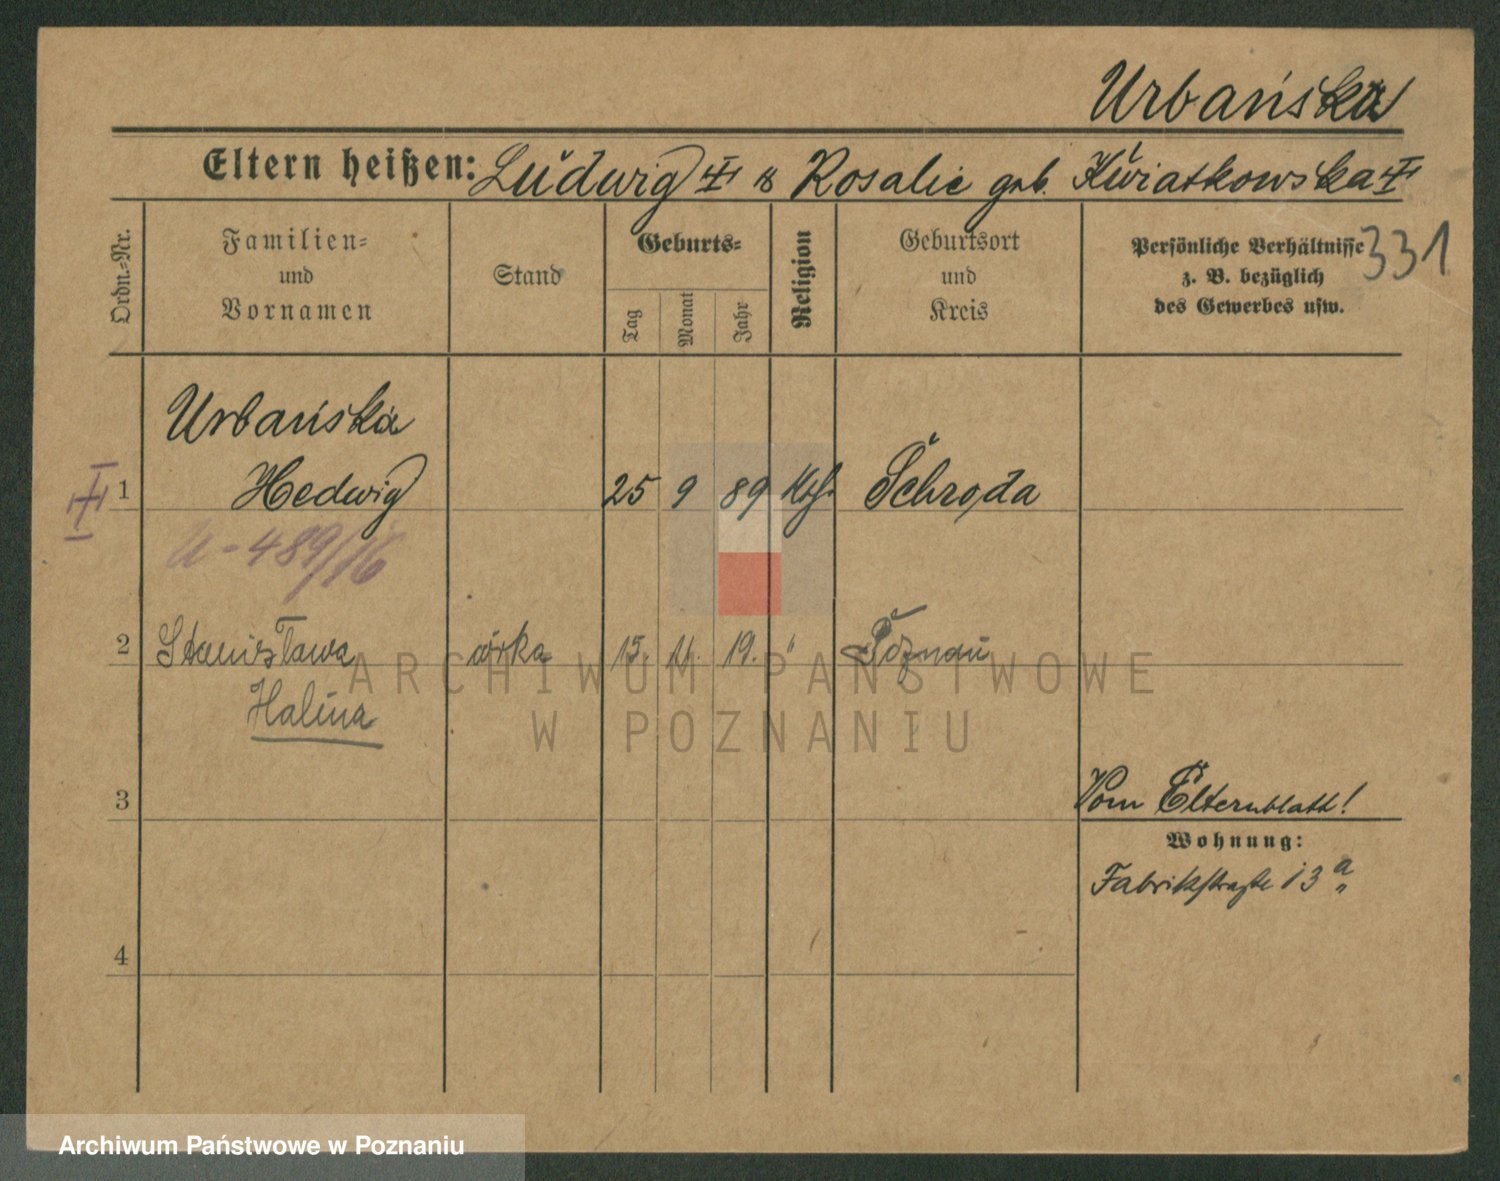 Urbańska
Eltern heißen: Ludwig u Rosalie geb. Kwiatkowska
331
Ordn.-Nr.
Familien-
und
Vornamen
Stand
Geburts-
Tag
Monat
Jahr
Religion
Geburtsort
und
Kreis
Persönliche Verhältnisse
z. B. bezüglich
des Gewerbes usw.
Urbańska
1 Hedwig 25 9 89 Kth. Schroda
U-489/16
2 Stanisława córka 15. 11. 19. " Poznań
Halina
ARCHIWUM PAŃSTWOWE
W POZNANIU
3 Vom Elternblatt!
Wohnung:
Fabrikstraße 13 a
4
Archiwum Państwowe w Poznaniu